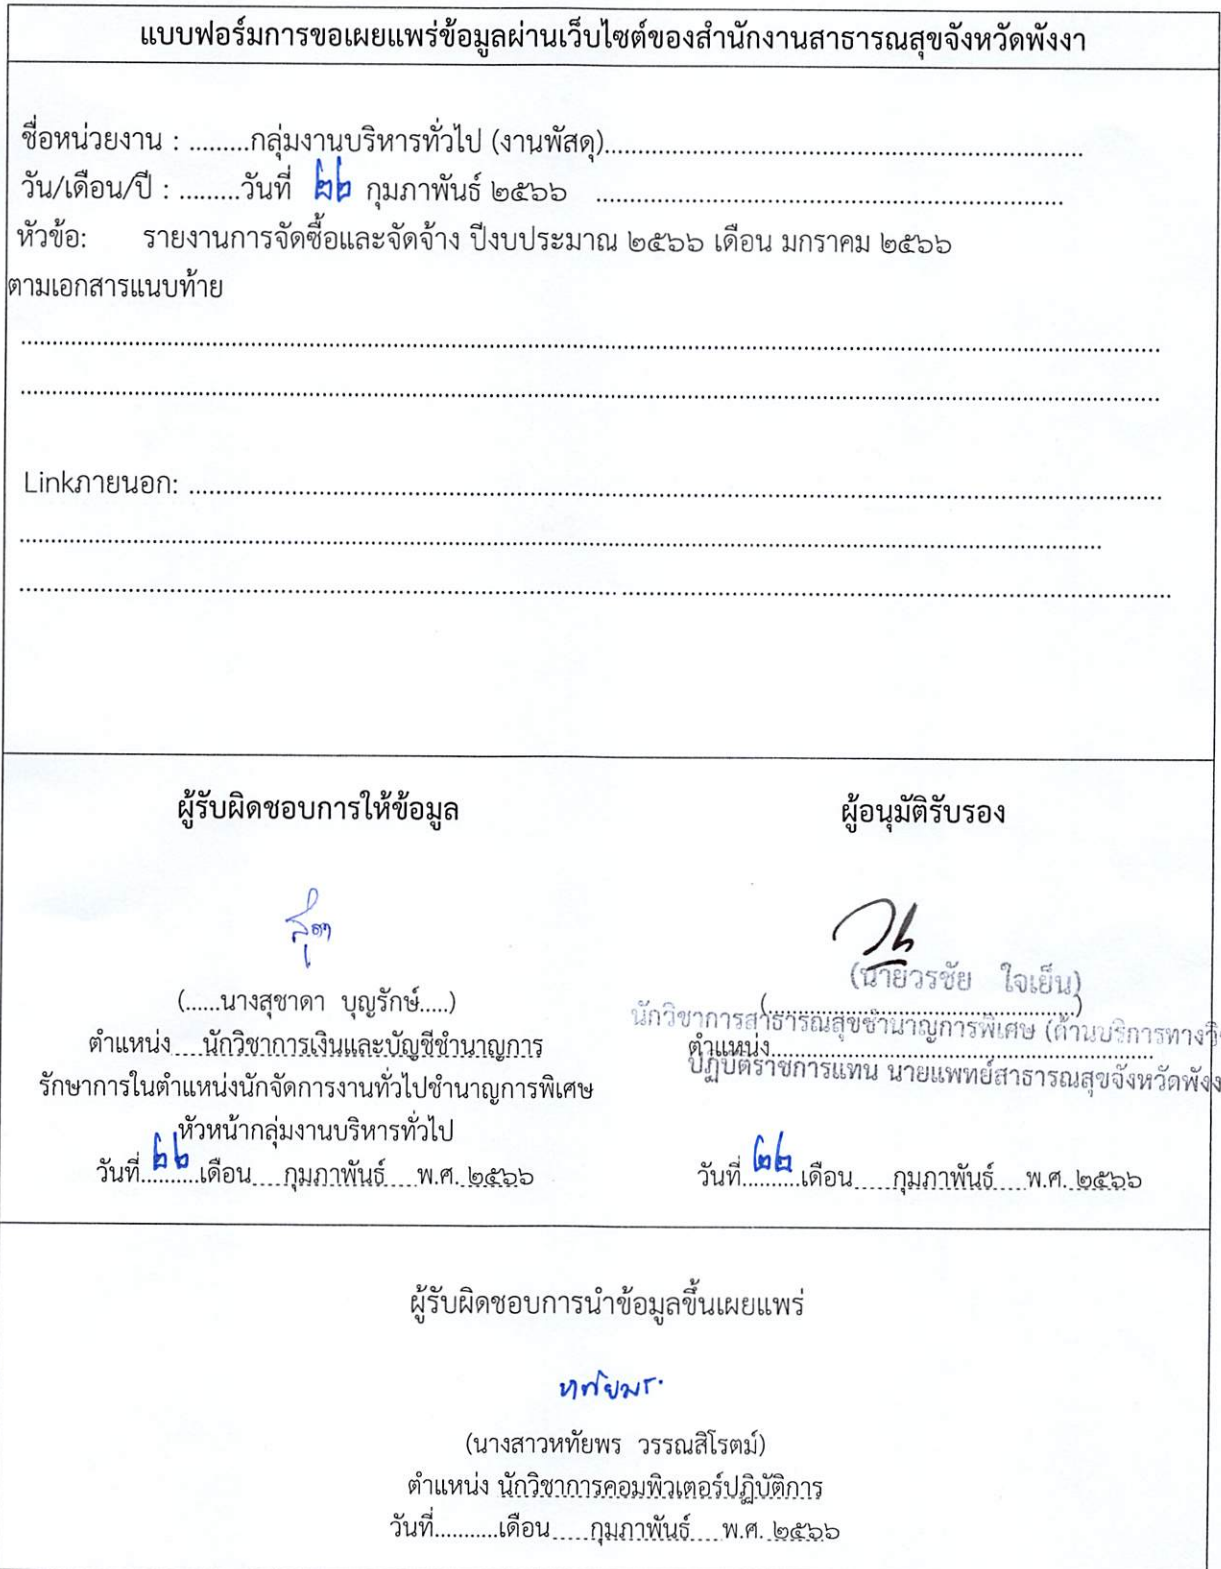 แบบฟอร์มการขอเผยแพร่ข้อมูลผ่านเว็บไซต์ของสำนักงานสาธารณสุขจังหวัดพังงา
ชื่อหน่วยงาน : .........กลุ่มงานบริหารทั่วไป (งานพัสดุ).......................................................................
วัน/เดือน/ปี : .........วันที่ ๒๒ กุมภาพันธ์ ๒๕๖๖ ......................................................................
หัวข้อ: รายงานการจัดซื้อและจัดจ้าง ปีงบประมาณ ๒๕๖๖ เดือน มกราคม ๒๕๖๖
ตามเอกสารแนบท้าย
Linkภายนอก: ..............................................................................................
ผู้รับผิดชอบการให้ข้อมูล
ผู้อนุมัติรับรอง
สุดา
(......นางสุชาดา บุญรักษ์.....)
ตำแหน่ง....นักวิชาการเงินและบัญชีชำนาญการ
รักษาการในตำแหน่งนักจัดการงานทั่วไปชำนาญการพิเศษ
หัวหน้ากลุ่มงานบริหารทั่วไป
วันที่ ๒๒ เดือน.....กุมภาพันธ์.....พ.ศ. ๒๕๖๖
(นายวรชัย ใจเย็น)
นักวิชาการสาธารณสุขชำนาญการพิเศษ (ด้านบริการทาง
ตำแหน่ง..............................................................
ปฏิบัติราชการแทน นายแพทย์สาธารณสุขจังหวัดพังง
วันที่ ๒๒ เดือน.....กุมภาพันธ์.....พ.ศ. ๒๕๖๖
ผู้รับผิดชอบการนำข้อมูลขึ้นเผยแพร่
หทัยพร
(นางสาวหทัยพร วรรณสิโรตม์)
ตำแหน่ง นักวิชาการคอมพิวเตอร์ปฏิบัติการ
วันที่...........เดือน.....กุมภาพันธ์.....พ.ศ. ๒๕๖๖